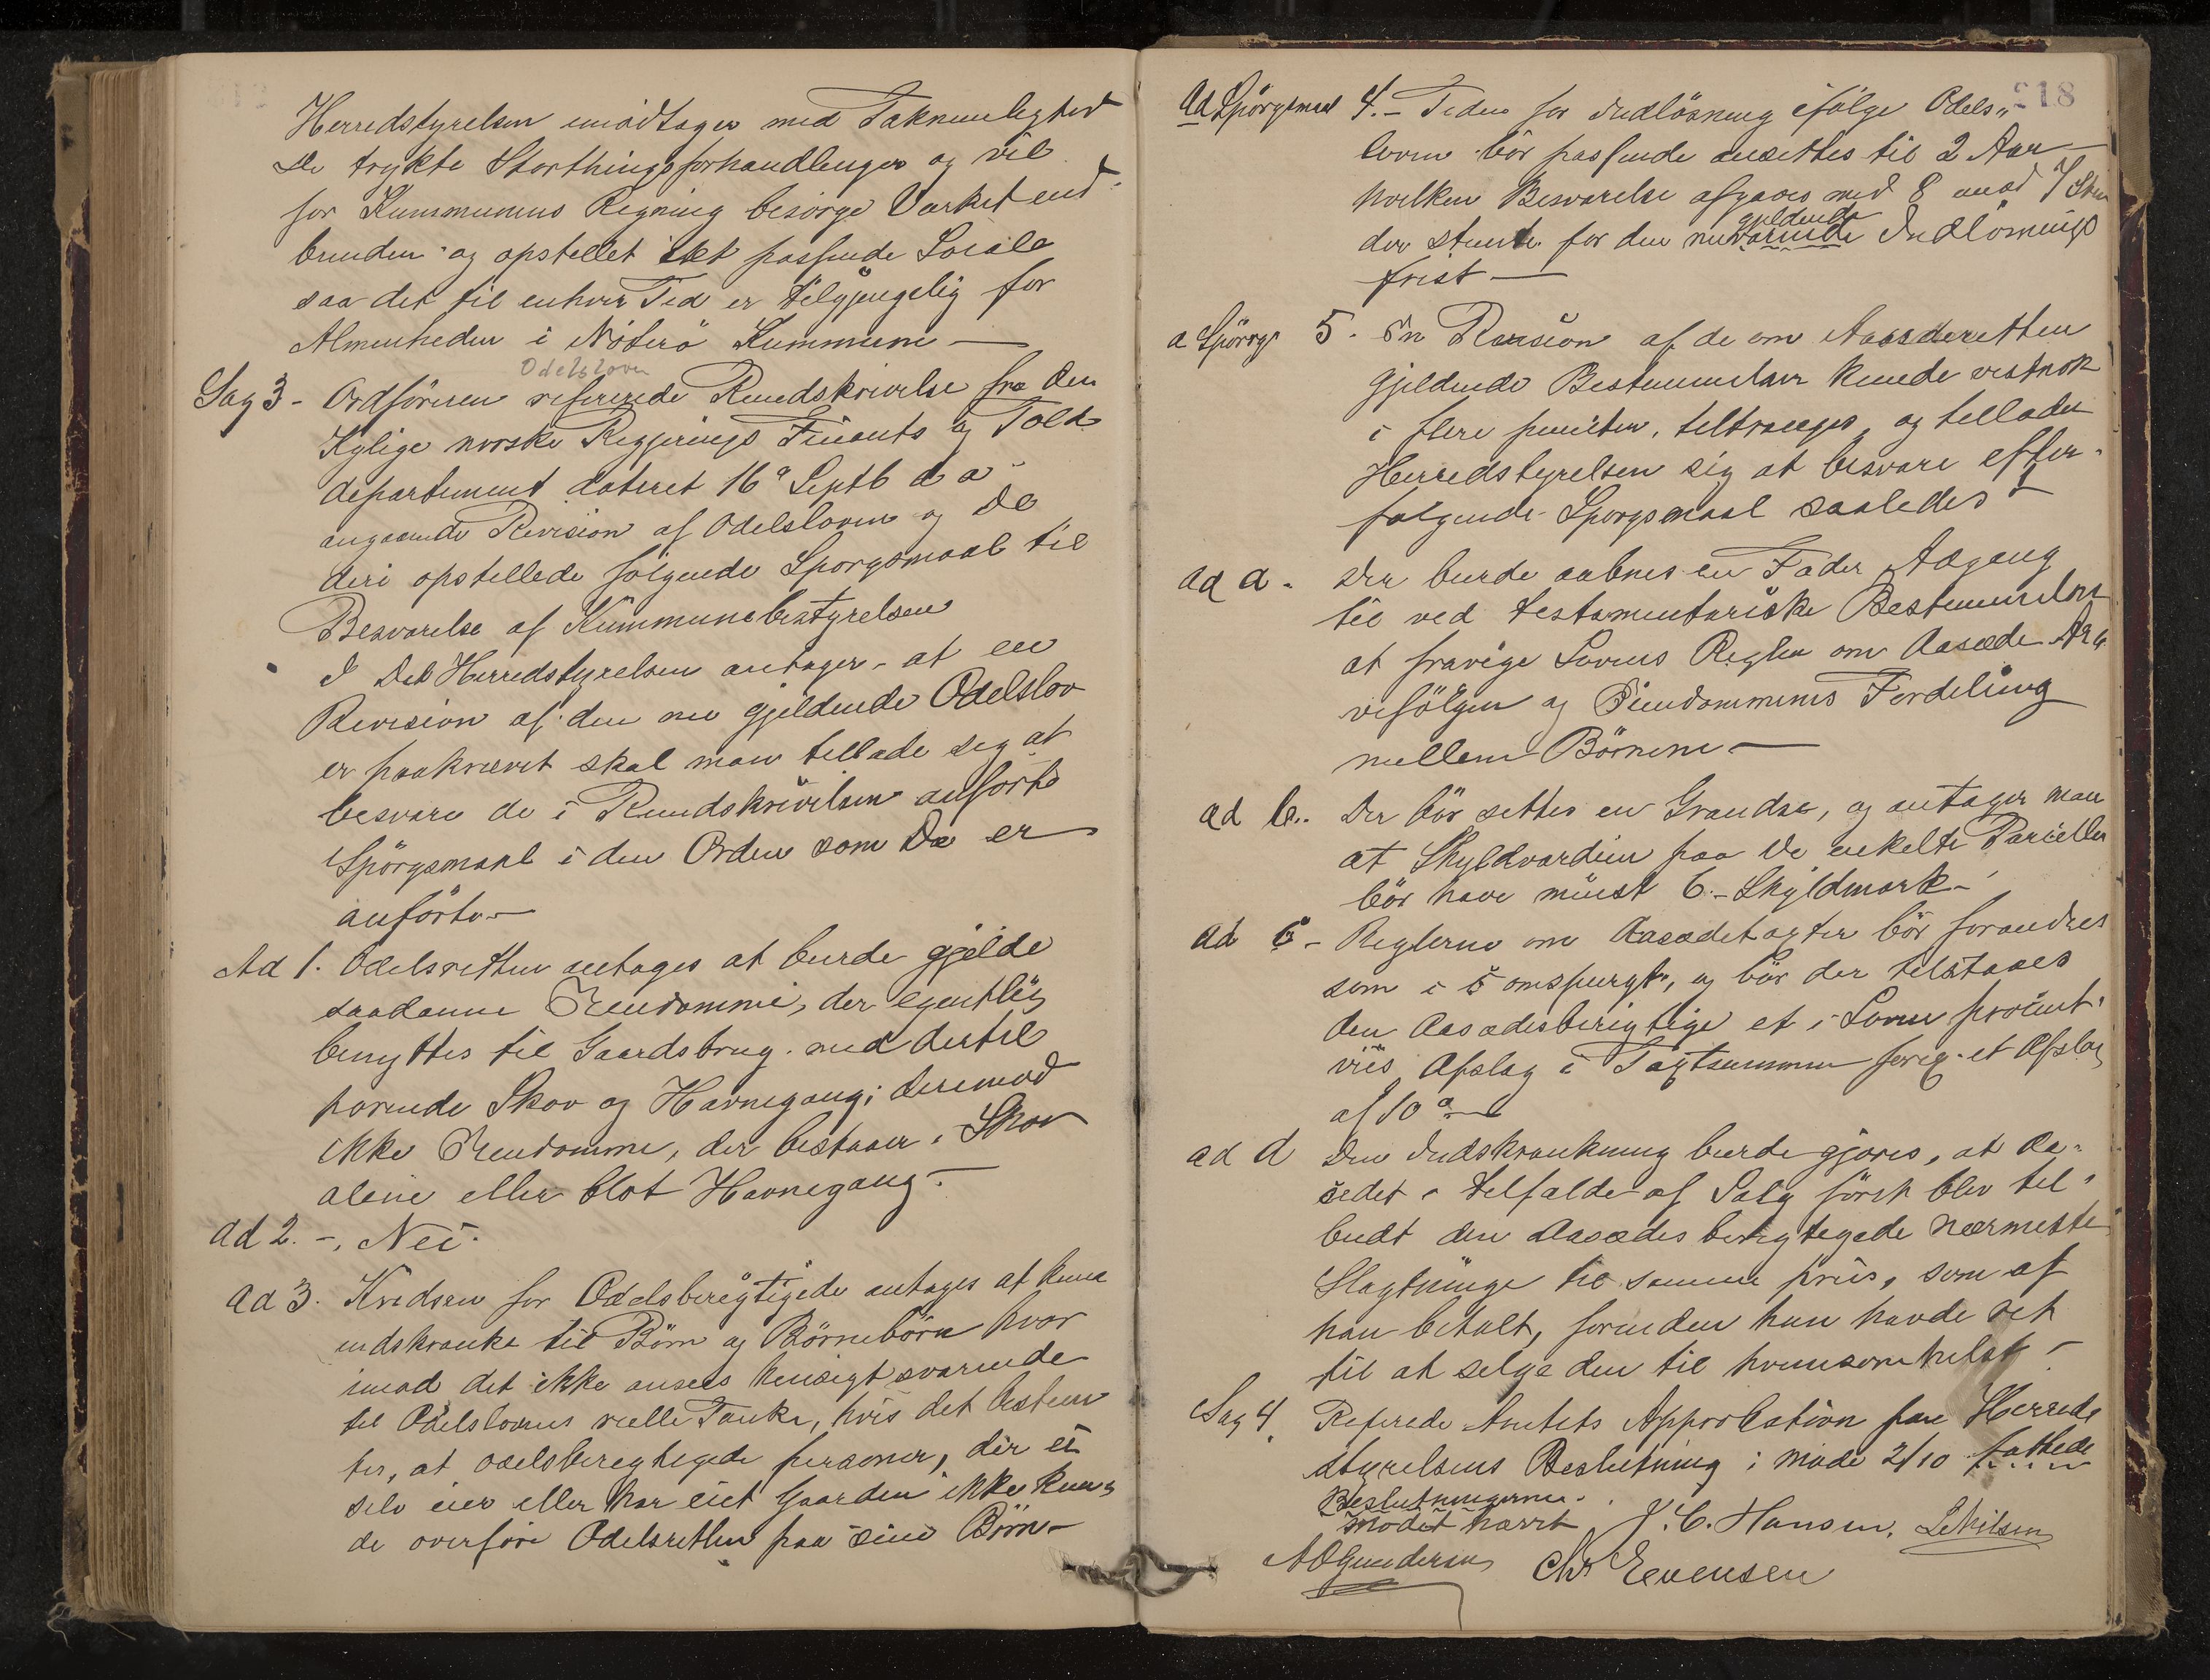 Herredstyrelsen imodtager med Taknemlighed
De trykte Storthingsforhandlinger og vil
for Kummunens Regning besörge Værket ind-
bunden og opstillet i et passende Locale
saa det til enhver Tid er tilgjengelig for
Almenheden i Nöterö Kummune —
Odelsloven
Sag 3 - Ordföreren refererede Rundskrivelse fra den
Kglige norske Regjerings Finants og Told
departement dateret 16de Septb d a
angaaende Revision af Odelsloven og De
deri opstillede fölgende Sporgsmaal til
Besvarelse af Kummunebestyrelsen
I Det Herredstyrelsen antager - at en
Revision af den nu gjeldende Odelslov
er paakrævet skal man tillade sig at
besvare de i Rundskrivelsen anförte
Spörgsmaal i den Orden som De er
anförte —
Ad 1. Odelsretten antages at burde gjelde
saadanne Eiendomme, der egentlig
benyttes til Gaardsbrug med dertil
hörende Skov og Havnegang; derimod
ikke Eiendomme, der bestaaer i Skov
alene eller blot Havnegang. —
Ad 2. -, Nei.
Ad 3. Kredsen for Odelsberigtigede antages at kune
indskrænke til Börn og Börnebörn hvor
imod det ikke ansees hensigtsvarende
til Odelslovens reelle Tanke, hvis det bestem
tes, at odelsberegtigede personer, der ei
selv eier eller har eiet Gaarden ikke kun-
de overföre Odelsretten paa sine Börn —
218
Ad Spörgsmaal 4. - Tiden for Indlösning ifölge Odels„
loven bör passende ansettes til 2 Aar —
hvilken Besvarelse afgaves med 8 mod 7 Stem
der stemte for den nuværende Indlösnings
gjeldende
frist —
a Spörgs 5. En Revision af de om Aasæderetten
gjeldende Bestemmelser kunde vistnok
i flere punkter, tiltrænges, og tillader
Herredstyrelsen sig at besvare efter-
følgende Sporgsmaal saaledes
ad a. Der burde aabnes en Fader Adgang
til ved testamentariske Bestemmelser
at fravige Lovens Regler om Aasæde Ar
vefölgen og Eiendommens Fordeling
mellem Börnene —
ad b.. Der bör settes en Grændse, og antager man
at Skyldværdien paa De enkelte Parceller
bör have minst 6 - Skyldmark -
ad c - Reglerne om Aasædetagter bör forandres
som i c omspurgt, og bör der tilstaaes
den Aasædesberigtige et i Loven procent-
viis Afslag i Tagtsummen et Afslag
af 10 %
ad d Den Indskrænkning burde gjöres, at Aa-
sedet i tilfælde af Salg först blev til-
budt den Aasædes berigtegede nærmeste
Slagtninge til samme priis, som af
han betalt, forinden han havde ret
til at selge den til hvemsomhelst —
Sag 4. Referede Amtets Approbation paa Herreds
styrelsens Beslutning i möde 2/10 fattede
Beslutningerne.
Mödet hævet J. C. Hansen, L Nilsen
A O Gundersen Chr Evensen